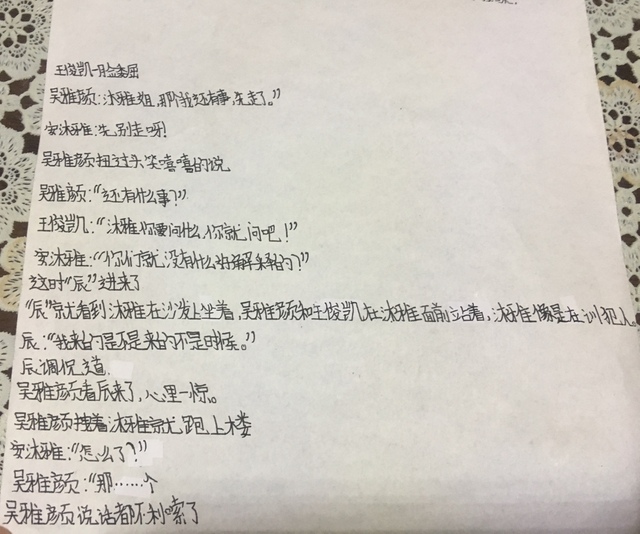 王俊凯一脸委屈
吴雅颜:沐雅姐,那个我还有事,先走了。”
安沐雅:先别走呀!
吴雅颜扭过头笑嘻嘻的说
吴雅颜:“还有什么事?”
王俊凯:“沐雅你要问什么,你就问吧!”
安沐雅:“你们就没有什么好解释的?”
这时“辰”进来了
“辰”就看到沐雅在沙发上坐着,吴雅颜和王俊凯在沐雅面前站着,沐雅像是在训犯人。
辰:“我来的是不是来的不是时候。”
辰调侃道
吴雅颜看辰来了,心里一惊。
吴雅颜拽着沐雅就跑上楼
安沐雅:“怎么了?”
吴雅颜:“那……个
吴雅颜说话都不利嗦了